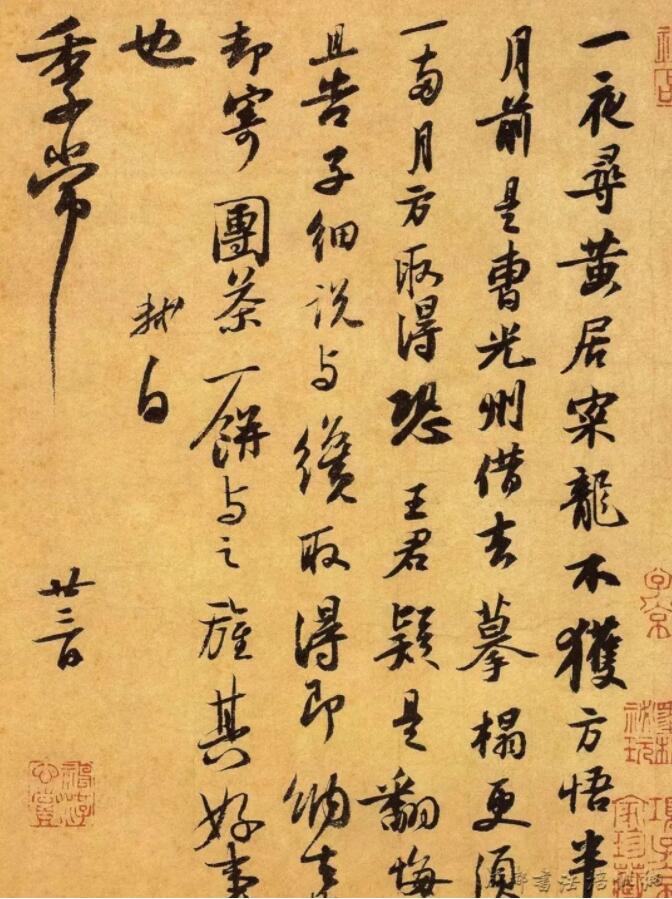 一夜尋黄居寀龍不獲方悟半
月前是曹光州借去摹搨更須
一兩月方取得恐王君疑是翻悔
且告子細説与纔取得即納去
却寄團茶一餅与之旌其好事
也
軾白
季常
廿三日
子京
書法培訓網